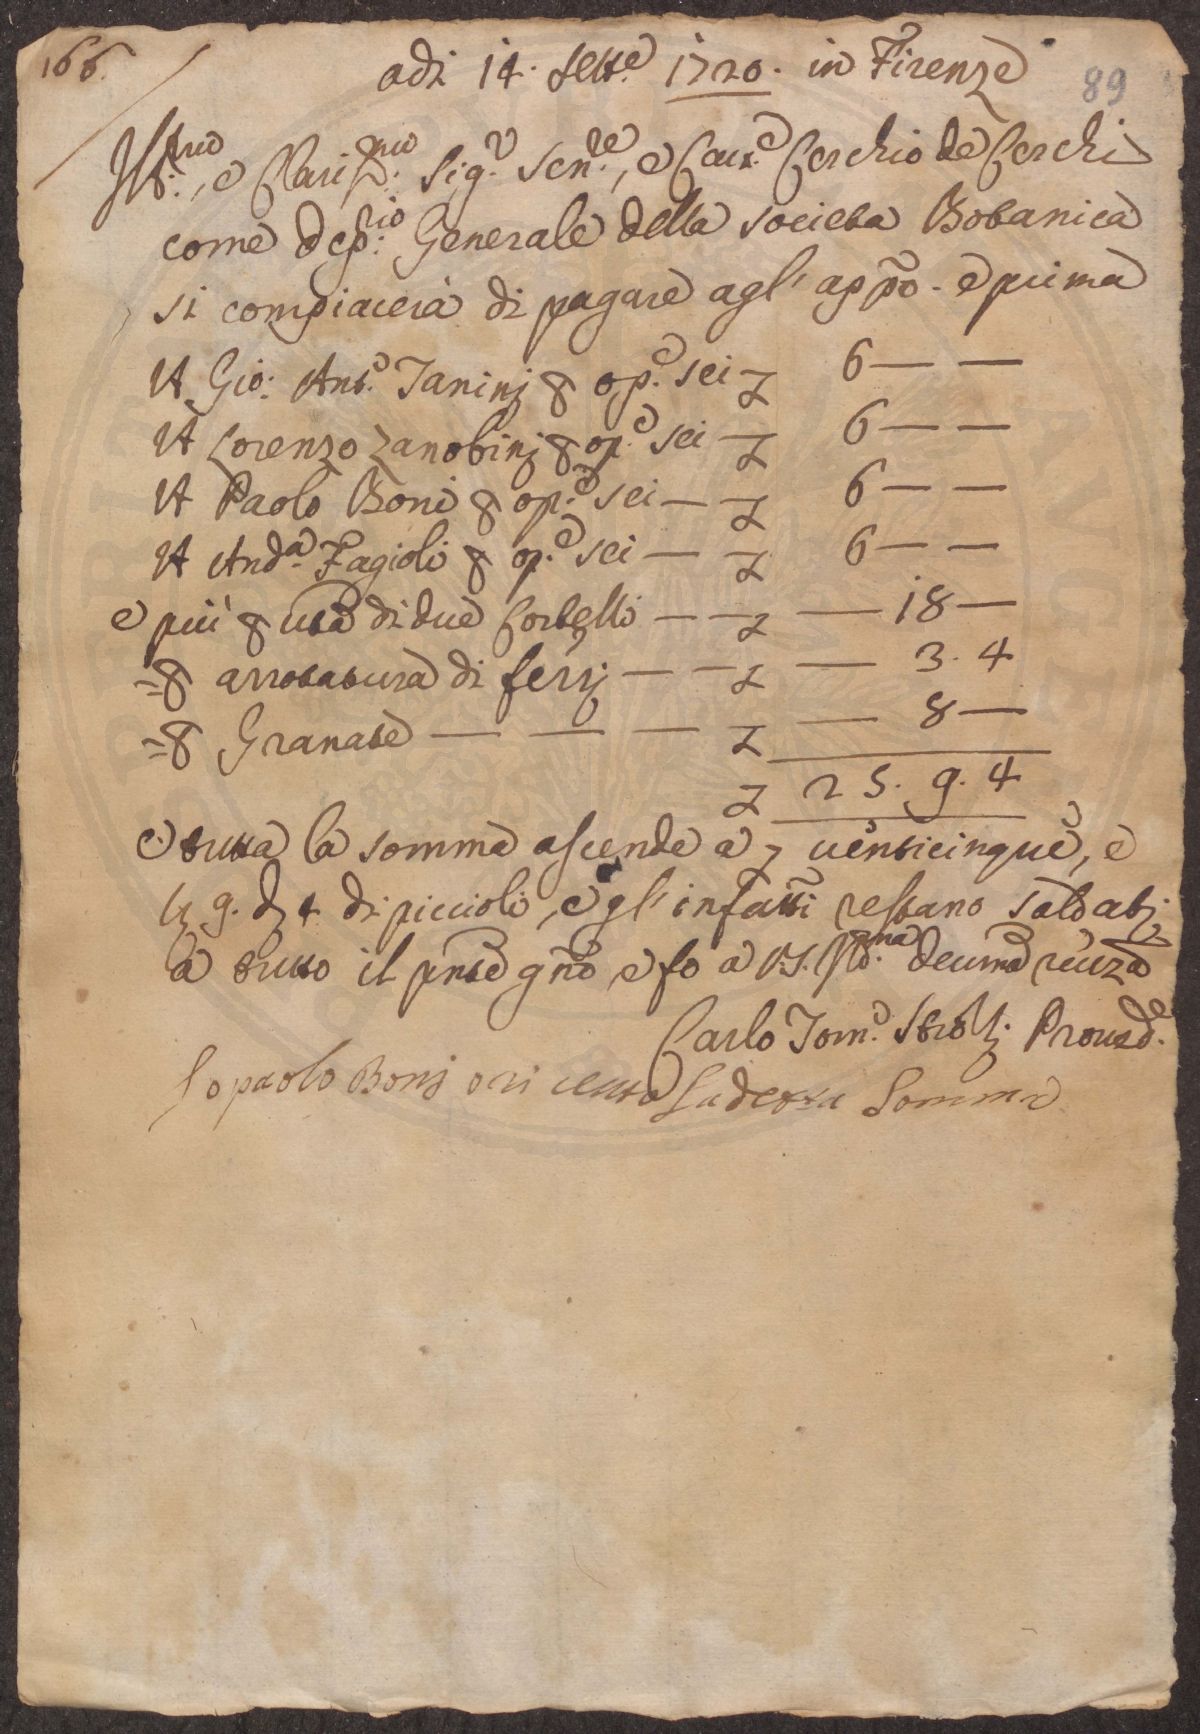 166.
adi 14. Sett.e 1720. in Firenze
89
Ill.mo, e Clariss.mo Sig.r Sen.re, e Cav.e Cerchio de Cerchi
come dep.rio Generale della Società Botanica
si compiacerà di pagare agl' appõ. e prima
A Gio: Ant.o Taninj p op.e sei £ 6 — —
A Lorenzo Zanobinj p op.e sei — £ 6 — —
A Paolo Boni p op.e sei — £ 6 — —
A And.a Fagioli p op.e sei — £ 6 — —
e più p uta di due Corbelli — — £ — 18 —
= p arrotatura di ferrj — — £ — 3. 4
= p Granate — — — £ — 8 —
£ 25. 9. 4
e tutta la somma ascende a £ venticinque, e
ß 9. d 4 di piccioli, e gl' infatti restano saldatj
a tutto il pnte gno e fo a V.S. Ill.ma deuma reuza
Carlo Tom.o Strozzj Proved.e
Io paolo Bonj o ri ceuto la detta Somma